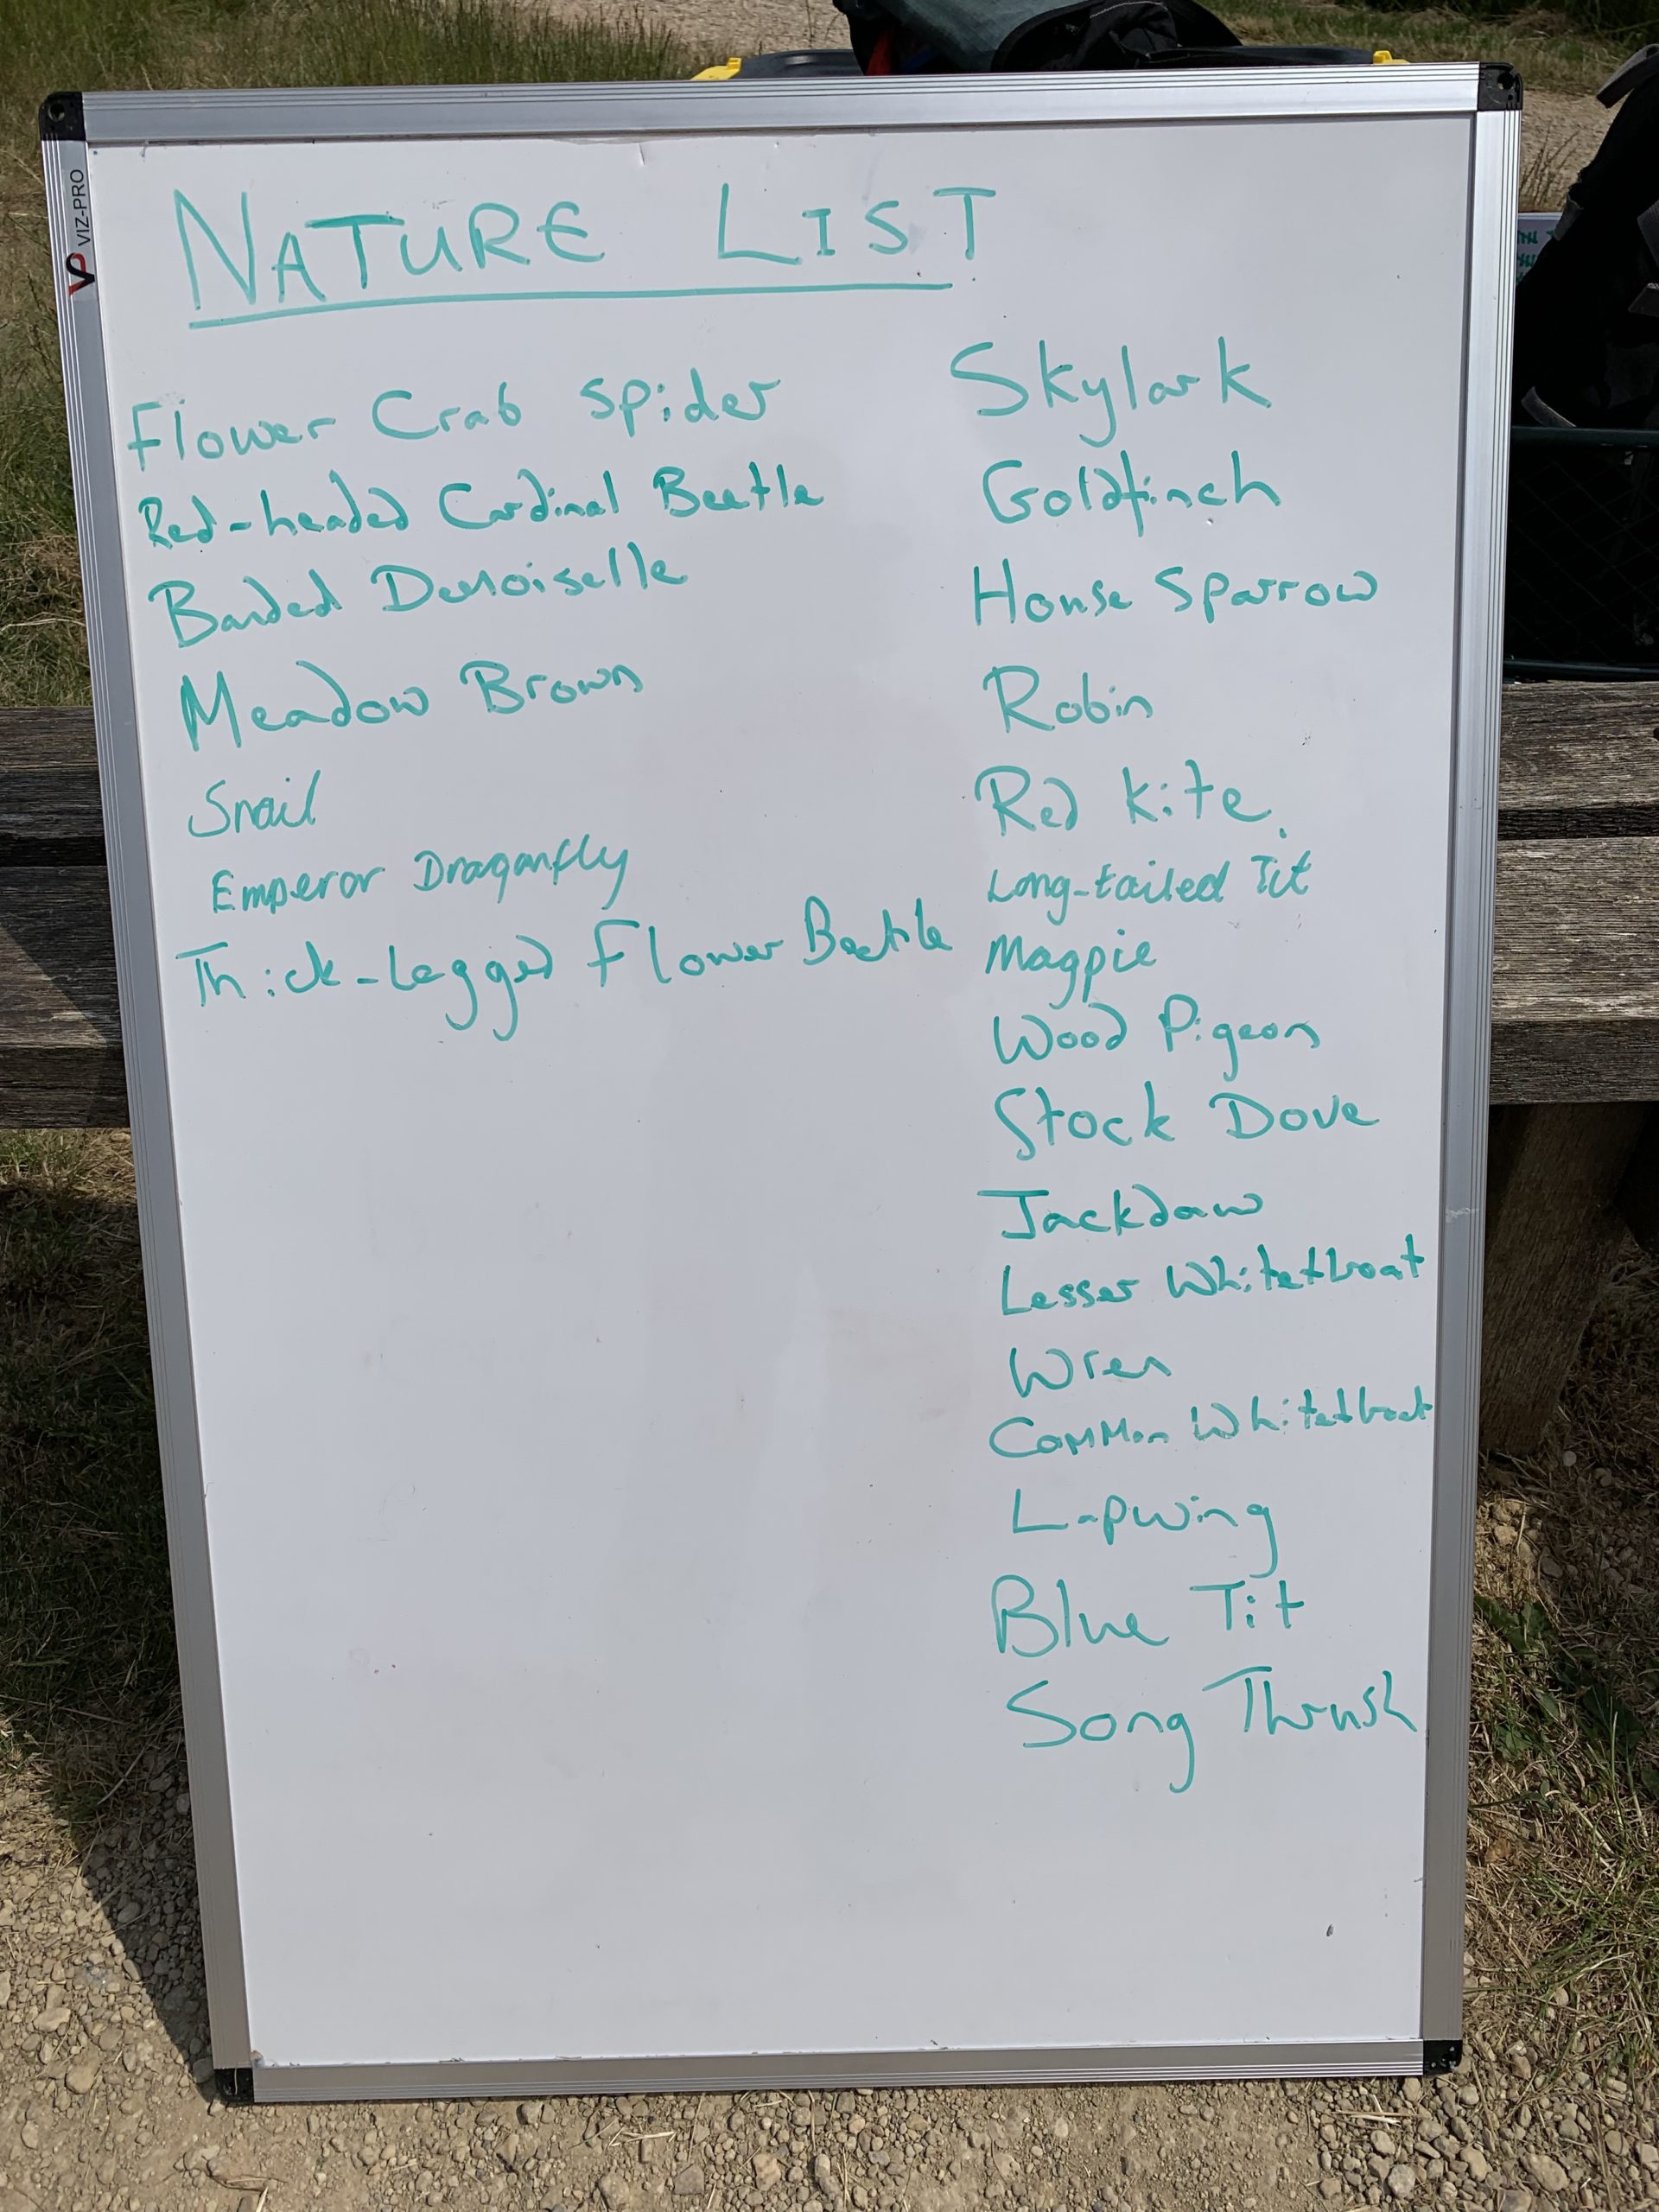 VIZ-PRO
NATURE LIST
Flower Crab Spider
Red-headed Cardinal Beetle
Banded Demoiselle
Meadow Brown
Snail
Emperor Dragonfly
Thick-Legged Flower Beetle
Skylark
Goldfinch
House Sparrow
Robin
Red Kite
Long-tailed Tit
Magpie
Wood Pigeon
Stock Dove
Jackdaw
Lesser Whitethroat
Wren
Common Whitethroat
Lapwing
Blue Tit
Song Thrush